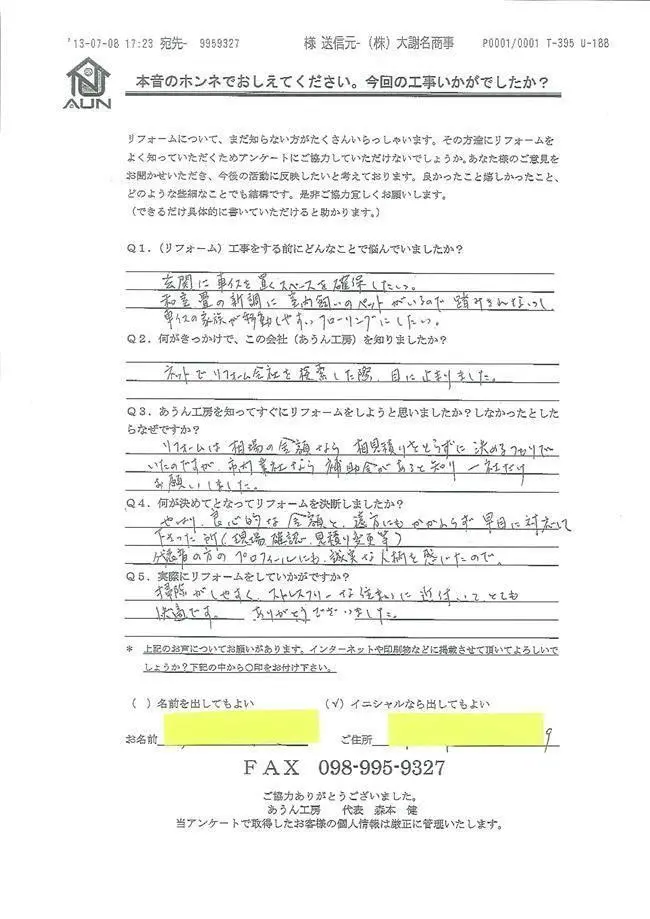 '13-07-08 17:23 宛先- 9959327 様 送信元-（株）大謝名商事 P0001/0001 T-395 U-188
AUN
本音のホンネでおしえてください。今回の工事いかがでしたか？
リフォームについて、まだ知らない方がたくさんいらっしゃいます。その方達にリフォームを
よく知っていただくためアンケートにご協力していただけないでしょうか。あなた様のご意見を
お聞かせいただき、今後の活動に反映したいと考えております。良かったこと嬉しかったこと、
どのような些細なことでも結構です。是非ご協力宜しくお願いします。
（できるだけ具体的に書いていただけると助かります。）
Q1．（リフォーム）工事をする前にどんなことで悩んでいましたか？
玄関に車イスを置くスペースを確保したい。
和室畳の新調に室内飼いのペットがいるので
車イスの家族が移動しやすいフローリングにしたい。
Q2．何がきっかけで、この会社（あうん工房）を知りましたか？
ネットでリフォーム会社を検索した際、目に止まりました。
Q3．あうん工房を知ってすぐにリフォームをしようと思いましたか？しなかったとした
らなぜですか？
リフォームは相場の金額なら相見積りをとらずに決めるつもりで
いたのですが、市内業社なら補助金があると知り一社だけ
お願いしました。
Q4．何が決めてとなってリフォームを決断しましたか？
やはり、良心的な金額と、遠方にもかかわらず早目に対応して
下さった所（現場確認、見積り変更等）
代表者の方のプロフィールにも、誠実な人柄を感じたので。
Q5．実際にリフォームをしていかがですか？
掃除がしやすく、ストレスフリーな住まいに近付いて、とても
快適です。 ありがとうございました。
* 上記のお声についてお願いがあります。インターネットや印刷物などに掲載させて頂いてよろしいで
しょうか？下記の中から〇印をお付け下さい。
（ ）名前を出してもよい （√）イニシャルなら出してもよい
お名前 ご住所
FAX 098-995-9327
ご協力ありがとうございました。
あうん工房 代表 森本 健
当アンケートで取得したお客様の個人情報は厳正に管理いたします。